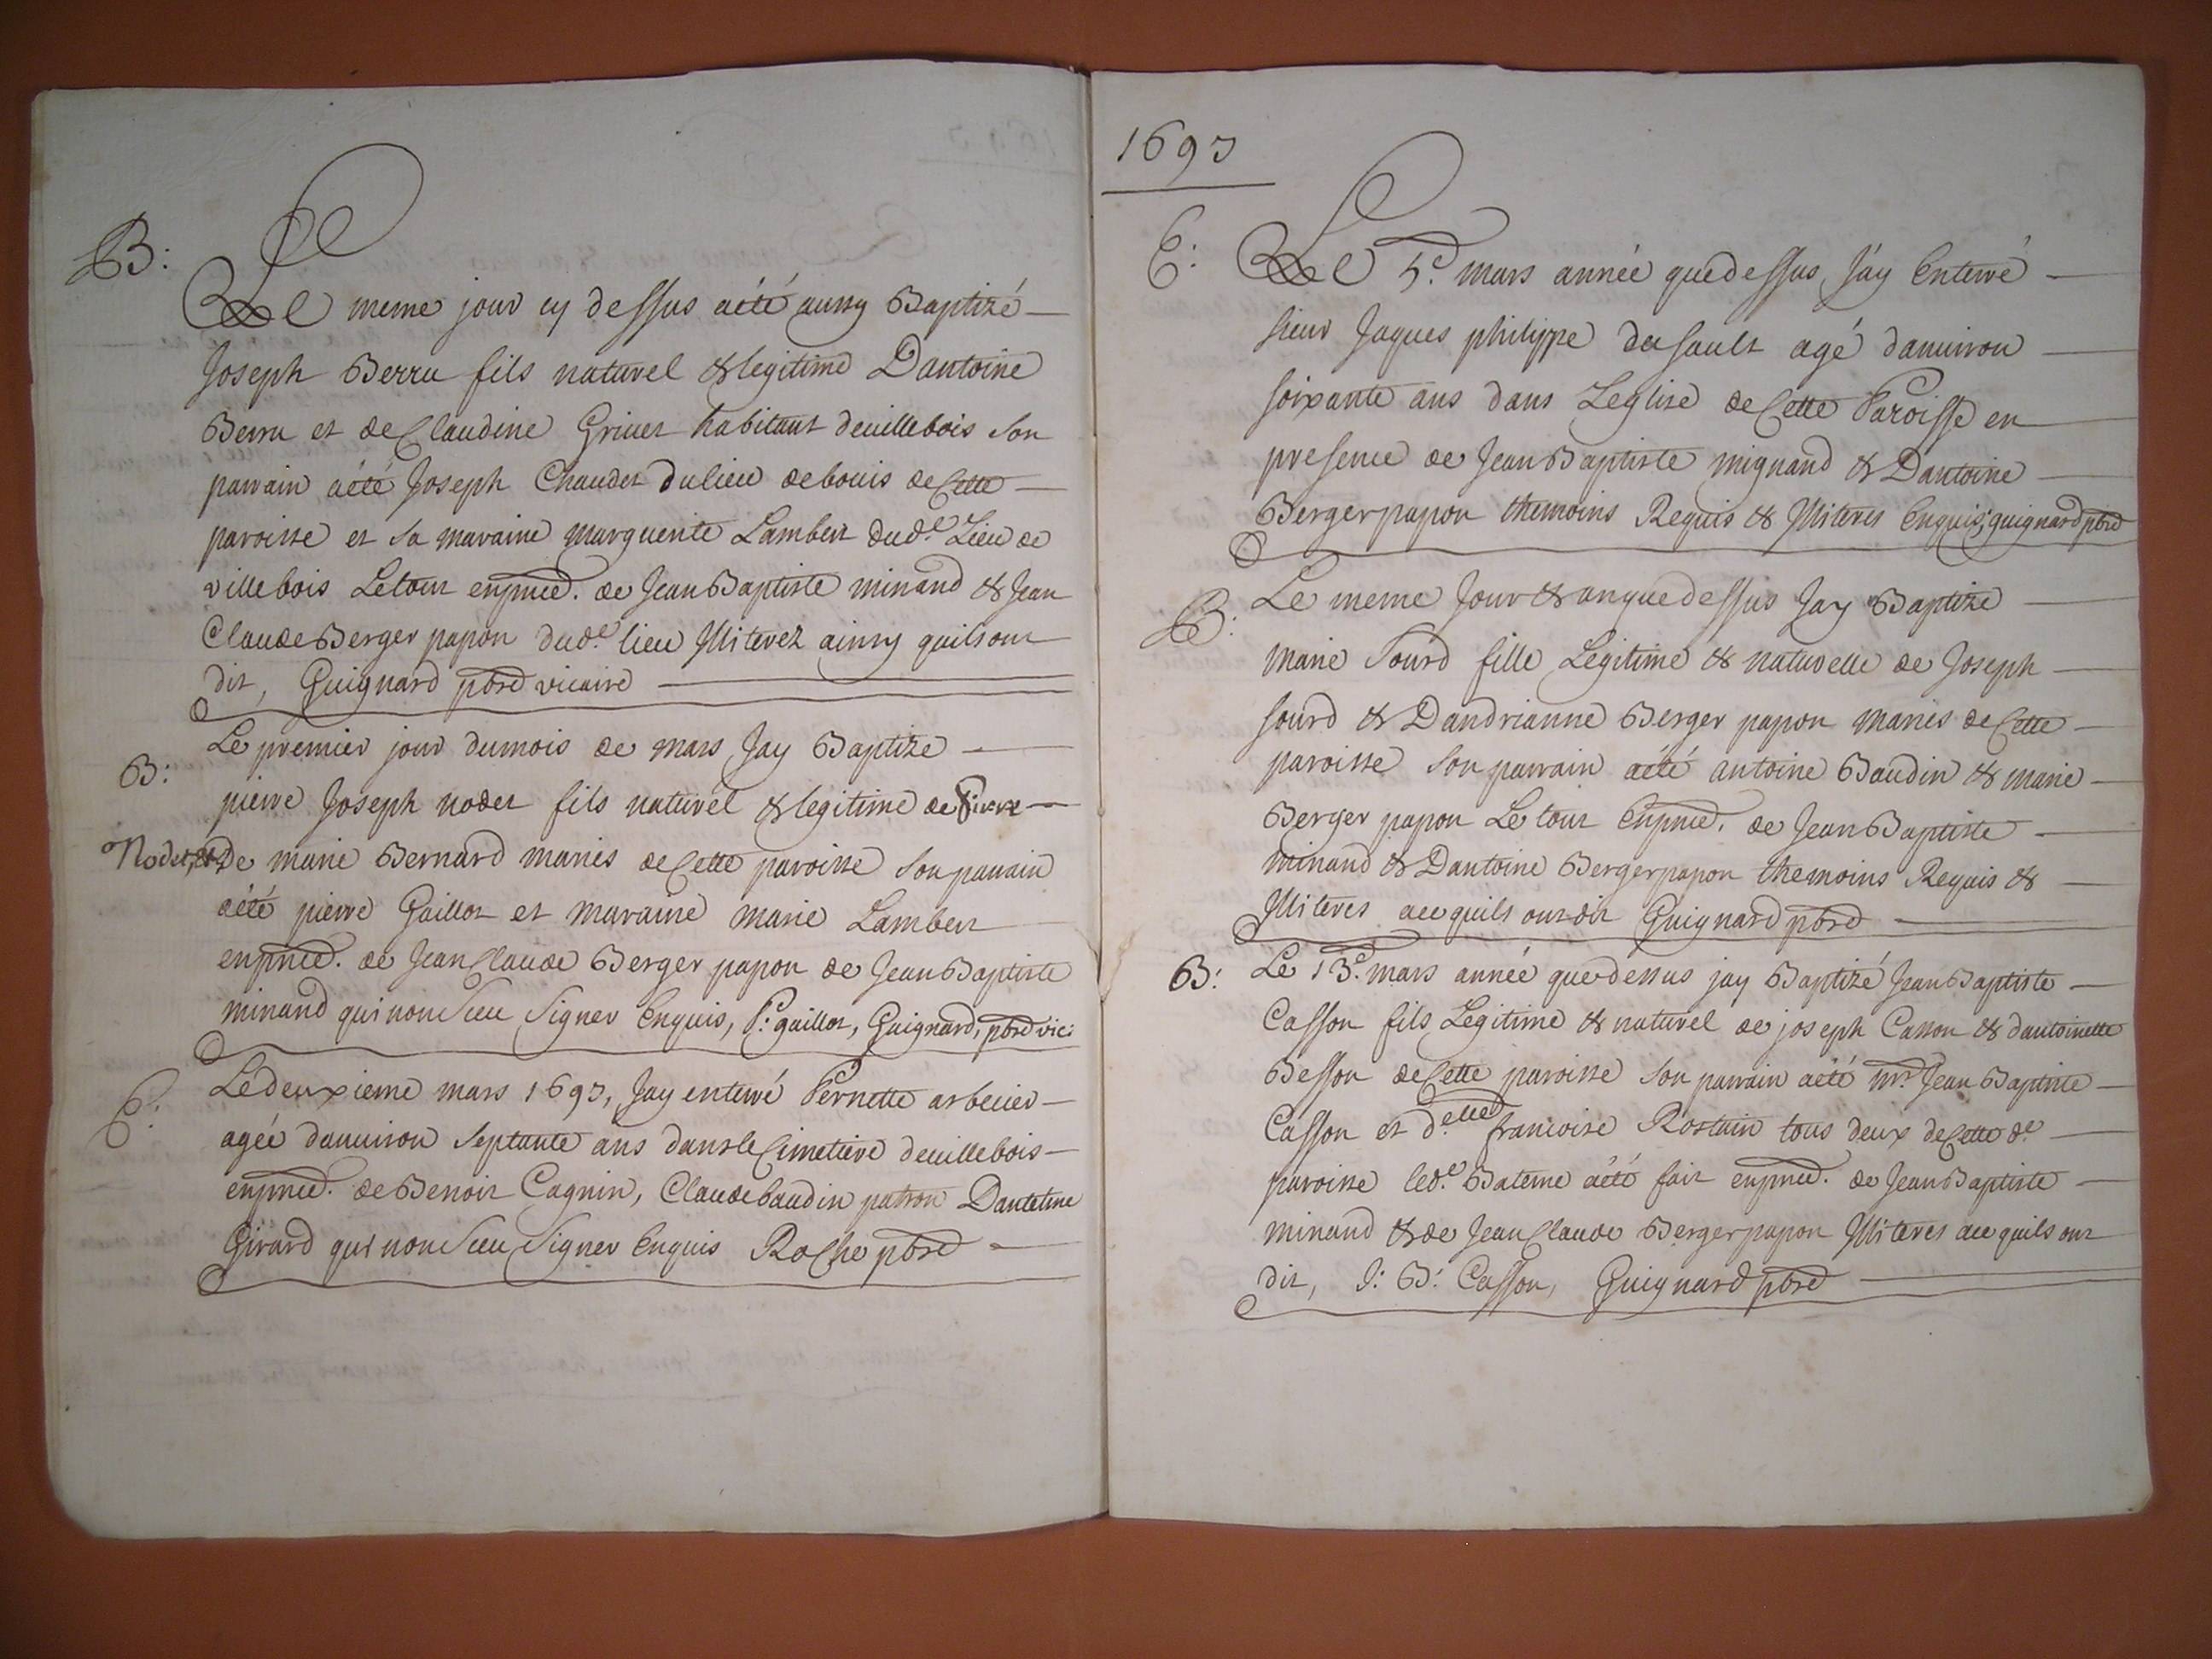 B:
Le meme jour cy dessus aété aussy Baptizé
Joseph Berru fils naturel & legitime Dantoine
Berru et de Claudine Grivet habitant devillebois son
parrain aété Joseph Chaudet dulieu debouis de Cette
paroisse et sa maraine marguerite Lambert dud.t Lieu de
villebois Letout enpnce. de Jean Baptiste minand & Jean
Claude Berger papon dud.t lieu Illiterez ainsy quilsont
dit, Guignard pbre vicaire
B:
Le premier jour dumois de mars Jay Baptize
pierre Joseph nodet fils naturel & legitime de Pierre
Nodet, & De marie Bernard mariés de Cette paroisse Son parrain
aété pierre Gaillot et maraine marie Lambert
enpnce. de Jean Claude Berger papon de Jean Baptiste
minand qui nont sceu Signer Enquis, P: gaillot, Guignard, pbre vic:
E:
Le deuxieme mars 1693, Jay enterré Pernette
agée danviron Septante ans dans le Cimetiere devillebois
enpnce. de Benoit Cagnin, Claude baudin patron
Girard qui nont sceu Signer Enquis Roche pbre
1693
E:
Le 5.e mars année quedessus Jáy Enterré
sieur Jaques philippe dusault agé danviron
soixante ans dans Leglise de Cette Paroisse en
presence de Jean Baptiste mignand & Dantoine
Berger papon themoins Requis & Illiteres Enquis; guignard pbre
B:
Le meme Jour & an quedessus Jay Baptize
marie Sourd fille Legitime & naturelle de Joseph
sourd & Dandrianne Berger papon mariés de Cette
paroisse Son parrain aété antoine Baudin & marie
Berger papon Le tout Enpnce. de Jean Baptiste
minand & Dantoine Berger papon themoins Requis &
Illiteres ace quils ont dit Guignard pbre
B:
Le 13.e mars année quedessus jay Baptizé Jean Baptiste
Casson fils Legitime & naturel de joseph Casson & dantoinette
Besson de Cette paroisse Son parrain aété mr. Jean Baptiste
Casson et d.elle francoise Rostain tous deux de Cette d.e
paroisse led.t Bateme aété fait enpnce. de Jean Baptiste
minand & de Jean Claude Berger papon Illiteres ace quils ont
dit, J: B: Casson, Guignard pbre